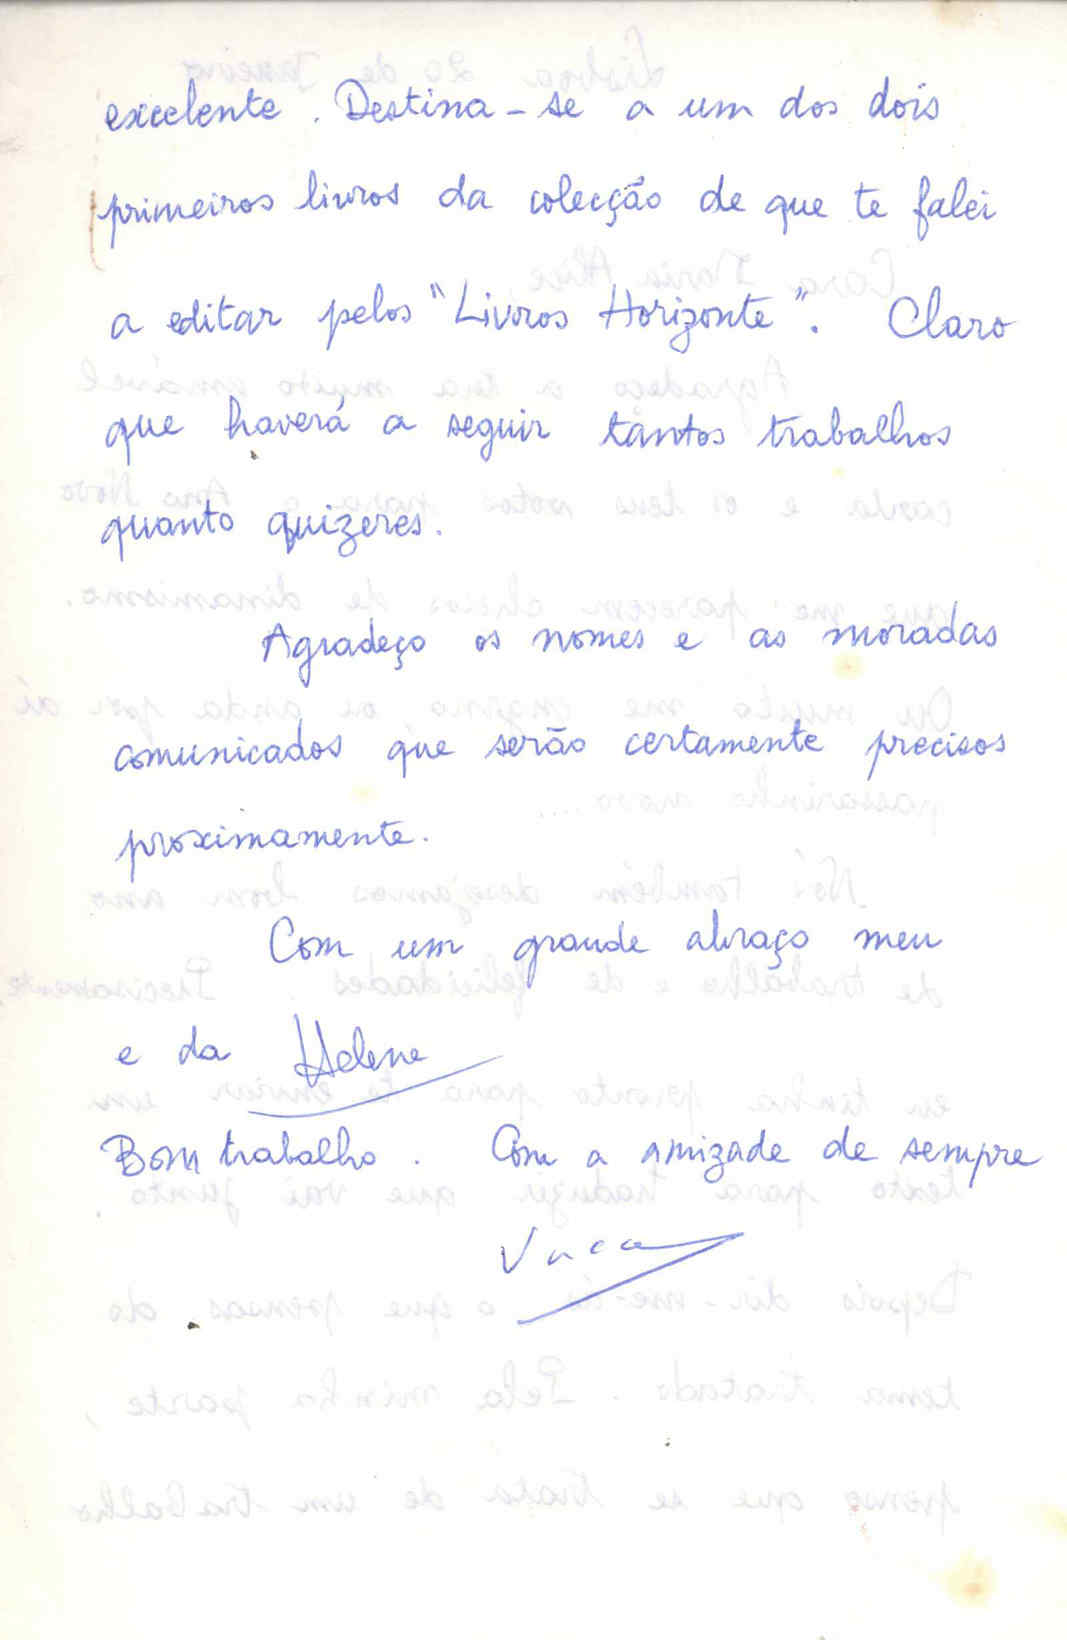 excelente. Destina-se a um dos dois
primeiros livros da colecção de que te falei
a editar pelos "Livros Horizonte". Claro
que haverá a seguir tantos trabalhos
quanto quizeres.
Agradeço os nomes e as moradas
comunicados que serão certamente precisos
proximamente.
Com um grande abraço meu
e da Helene
Bom trabalho. Com a amizade de sempre